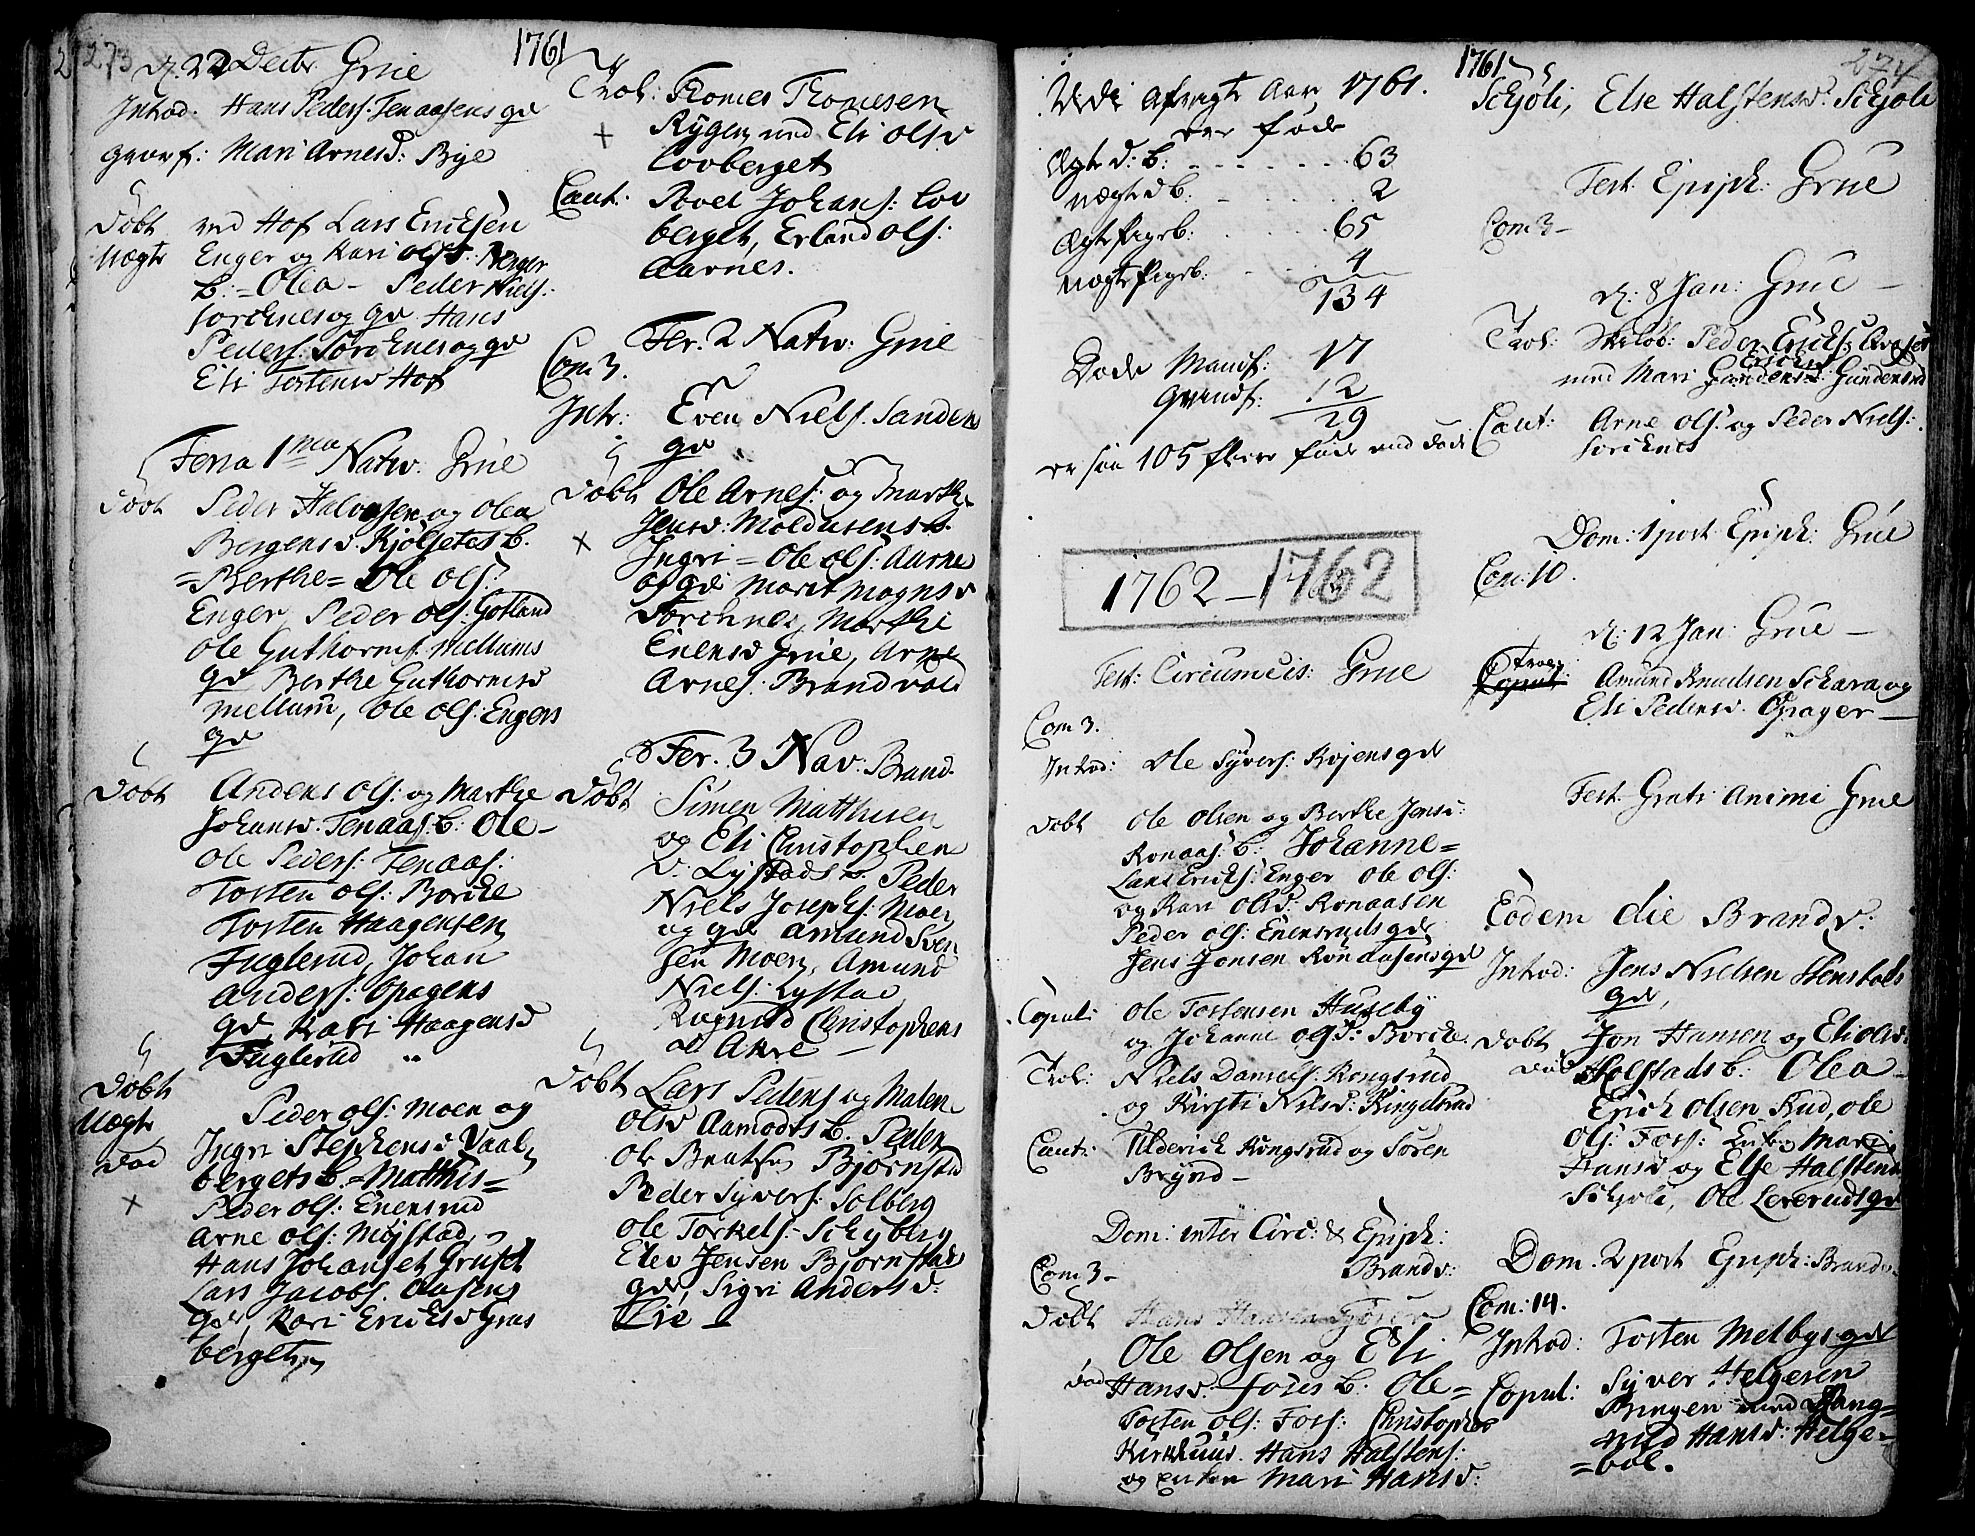 273
1761
d. 22 Decbr Grue
Introd. Hans Peders: Tenaasens qv
gravf: Mari Arnesd: Bye
Döbt ved Hof Lars Erichsen
Uægte Enger og Kari olsd:
b: = Olea - Peder Niels:
Sorchnes og qv Hans
Peders: Sorchnes og qv
Eli Torstensd Hof
Feria 1ma Nativ: Grue
Döbt Peder Halvorsen og olea
Bergersd Kjölsetes b.
= Berthe = Ole ols:
Enger, Peder ols: Gotland
Ole Guthorms: Mellums
qv Berthe Guthormsd
Mellum, Ole ols: Engers
qv
Döbt Anders ols: og Marthe
Johansd. Tenaas: b: Ole -
Ole Peders: Tenaas:
Torsten ols: Borche
Torsten Haagensen
Fuglerud, Johan
Anders: Opagens
qv, Kari Haagensd
Fuglerud "
Döbt Peder ols: Moen og
Uægte Ingri Stephensd Vaal
död bergets b. = Matthis =
+ Peder ols: Enensrud
Arne ols: Möystad,
Hans Johanses: Gruset
Lars Jacobs: Aasens
qv, Kari Erichsd Gras
berget
Trol: Thomes Thomesen
+ Rÿgen med Eli olsd
Lovberget
Caut: Povel Johans: Lov
berget, Erland ols:
Aarnes.
Fer. 2 Nativ: Grue
Com 3.
Intr: Even Niels: Sandens
qv
Döbt Ole Arnes: og Marthe
Jensd: Moldusens b.
+ Ingri = Ole ols: Aarne
og qv Marit Magnsd
Sorchnes, Marthe
Enensd Grue, Arne
Arnes: Brandvold
Fer. 3 Nav: Brand.
Döbt Simen Matthisen
og Eli Christophen
d: Lystads b. Peder
Niels Josephs: Moen
og qv Amund Sven
sen Moen, Amund
Niels: Lystad
Ragnild Christophers
d: Akre -
Döbt Lars Peders og Malene
olsd Aamodts b. Peder
Ole Björnstad
Peder Syvers: Solberg
Ole Torkels: Schyberg
Elev Jensen Björnstads
qv, Sigri Andersd:
Lie
1761
274
Udi afvigte Aar 1761.
ere föde
Ægte d: b: - - - - - - 63
uægte db. - - - - 2
Ægte Pigeb: - - - - 65
uægte Pigeb: - - - 4
134
Döde Mandk: 17
Qvindk: 12
29
er saa 105 fleere föde end döde
1762 - 1762
Fest: Circumcis: Grue
Com 3.
Introd: Ole Syvers: Röjens qv
Döbt Ole Olsen og Berthe Jensd:
Ronaas: b: Johanne =
Lars Erichs: Enger Ole ols:
og Kari Olsd: Ronaasen
Peder ols: Enensruds qv
Jens Jonsen Ronaasens qv
Copul: Ole Torstensen Huseby
og Johanne olsd: Borche.
Trol: Niels Daniels: Rongsrud
og Kirsti Nilsd: Ringelsrud
Caut: Ulderich Rongsrud og Sören
Brÿnd -
Dom: inter Circ: & Epiph:
Brandv:
Com 3 -
Döbt
Ole Olsen og Eli
död Hansd: Fosses b: Ole =
Torsten ols: Fors: Christopher
Kirkhuus. Hans Halstens:
og enken Mari Hansd:
Schjöli, Else Halstensd: Schjöli
Fest: Epiph: Grue
Com 3 -
d: 8 Jan: Grue -
Trol: Peder Erichs:
med Mari Erichsd Gundersrud
Caut: Arne ols: og Peder Niels:
Sorchnes
Dom: 1 post Epiph: Grue
Com: 10.
d: 12 Jan: Grue -
Trol: Amund Knudsen Schara og
Eli Pedersd. Opager -
Fest. Grati Animi Grue
Eodem die Brandv:
Introd: Jens Nielsen Stenstads
qv,
Döbt Jon Hansen og Eli olsd:
död Holstads b: Olea -
Erich Olsen Rud, ole
ols: Fors: Mari
Hansd og Else Halstensd
Schjöli, Ole Lererudsqv
Dom. 2 post Epiph: Brandv.
Com: 14.
Introd: Torsten Melbys qv
Copul: Syver Helgesen
Bringen med Rang=
nild Hansd: Helge=
=böl.